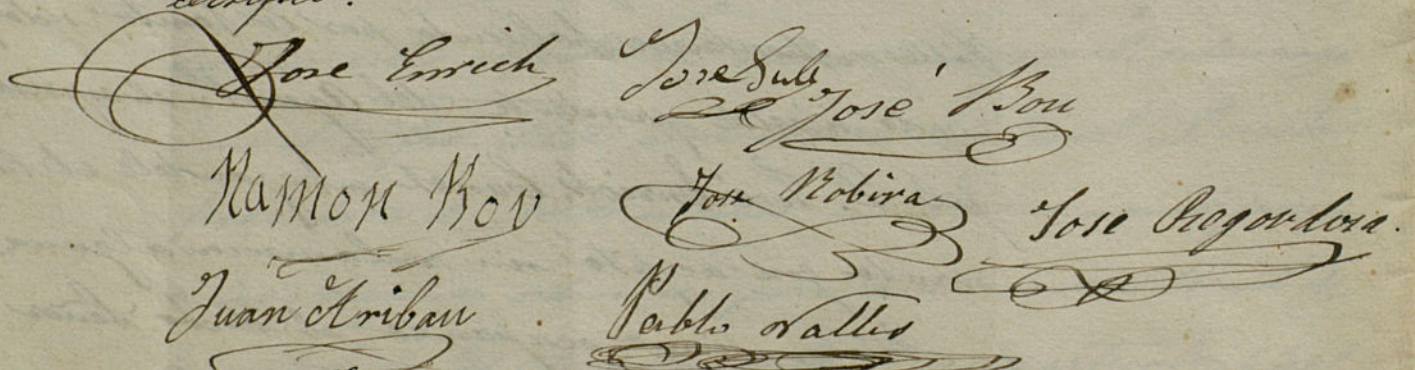 Jose Enrich
Jose Guli
José Bou
Ramon Rov
Jose Robira
Jose Regordosa.
Juan Aribau
Pablo Valles